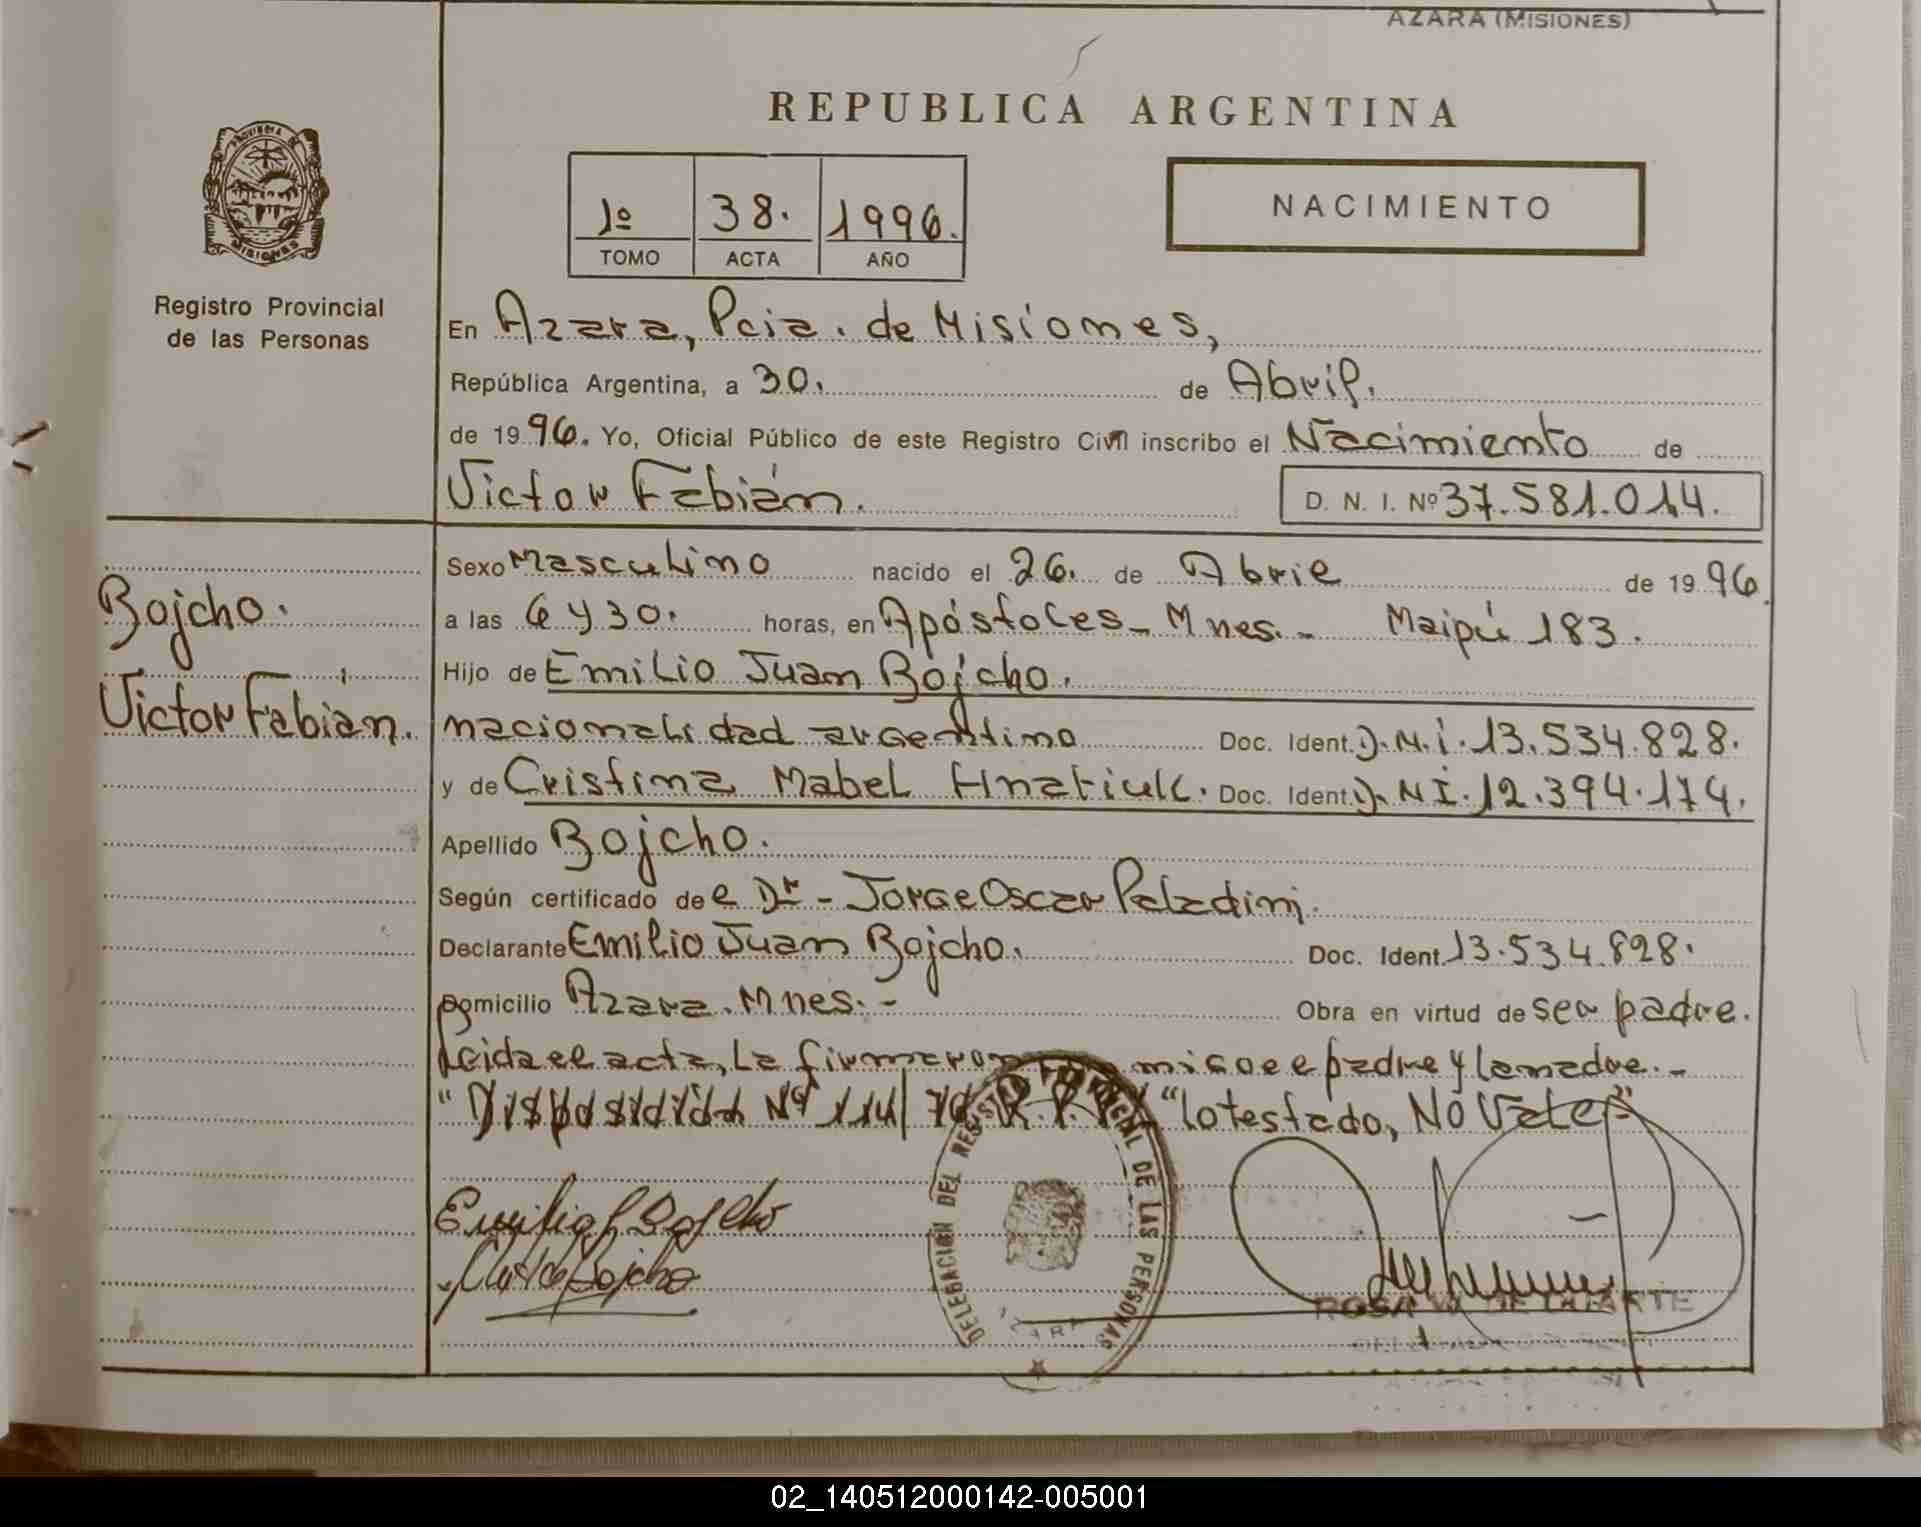 AZARA (MISIONES)
REPUBLICA ARGENTINA
1º 38. 1996.
TOMO ACTA AÑO
NACIMIENTO
PROVINCIA DE
MISIONES
Registro Provincial
de las Personas
En Azara, Pcia. de Misiones,
República Argentina, a 30. de Abril.
de 1996. Yo, Oficial Público de este Registro Civil inscribo el Nacimiento de
Victor Fabián. D. N. I. Nº 37.581.014.
Bojcho.
Victor Fabián.
Sexo Masculino nacido el 26. de Abril de 1996.
a las 6 y 30. horas, en Apóstoles - Mnes. - Maipú 183.
Hijo de Emilio Juan Bojcho.
nacionalidad argentino Doc. Ident. D.N.I. 13.534.828.
y de Cristina Mabel Hnatiuk. Doc. Ident. D.NI. 12.394.174.
Apellido Bojcho.
Según certificado de el Dr - Jorge Oscar Paladini.
Declarante Emilio Juan Bojcho. Doc. Ident. 13.534.828.
Domicilio Azara. Mnes. - Obra en virtud de ser padre.
Leida el acta, la firmaron migo el padre y la madre. -
"Disposición Nº 114/ 70 R.P.P." "lo testado, No Vale"
Emilio J Bojcho
Bojcho
DELEGACIÓN DEL REGISTRO PROVINCIAL DE LAS PERSONAS
AZARA
ROSA DE DUARTE
02_140512000142-005001